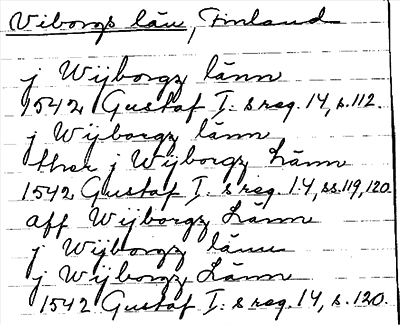 Viborgs län, Finland
j Wijborgz länn
1542 Gustaf I: s reg. 14, s. 112.
j Wijborgz länn
ther j Wijborgz Länn
1542 Gustaf I: s reg. 14, ss. 119, 120.
aff Wijborgz Länn
j Wijborgz länn
j Wijborgz Länn
1542 Gustaf I: s reg. 14, s. 120.